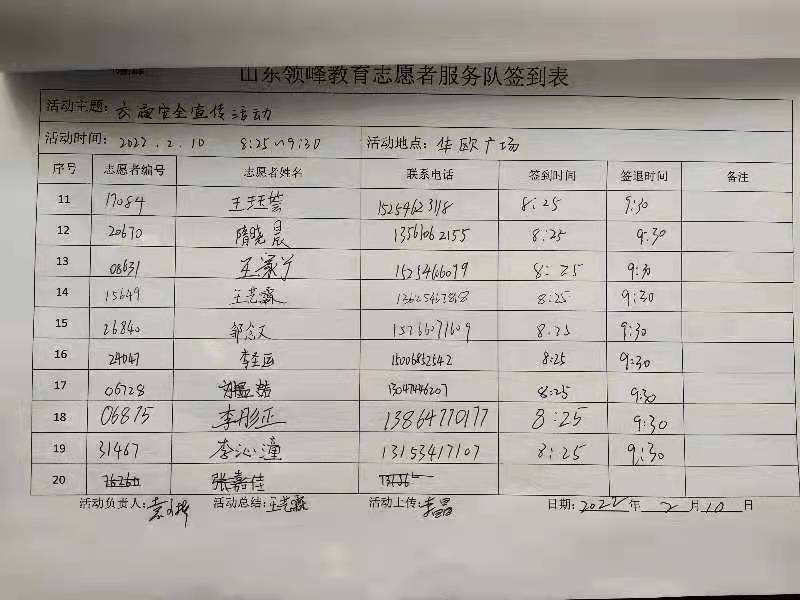 山东领峰教育志愿者服务队签到表
活动主题： 衣蔽安全宣传活动
活动时间： 2022.2.10 8:25~9:30 活动地点： 华欧广场
序号 志愿者编号 志愿者姓名 联系电话 签到时间 签退时间 备注
11 17084 王珏荟 15254623118 8:25 9:30
12 20670 隋晓晨 13561062155 8:25 9:30
13 08631 王 8:25 9:30
14 15649 王艺霖 8:25 9:30
15 26840 邹 8:25 9:30
16 24047 李 15006852542 8:25 9:30
17 06728 8:25 9:30
18 06875 李彤正 13864770177 8:25 9:30
19 31467 李沁潼 13153417107 8:25 9:30
20 张嘉佳
活动负责人： 袁 活动总结： 王艺霖 活动上传： 李昌 日期： 2022 年 2 月 10 日